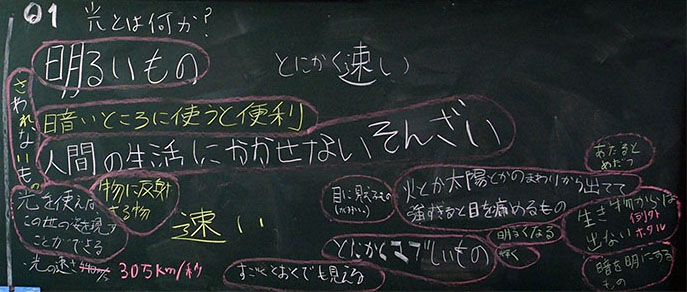 Q1 光とは何か?
明るいもの
とにかく速い
さわれないもの
暗いところに使うと便利
人間の生活にかかせないそんざい
あたると
めだつ
物に反射
する物
目に見えるもの
火とか太陽とかのまわりから出てて
強すぎると目を痛めるもの
光を使えば
この世の姿を現す
ことができる
速い
生き物からは
出ない
例外
ホタル
とにかくマブしいもの
明るくなる
輝く
光の速さ
305km/秒
すごくとおくでも見える
暗を明にする
もの